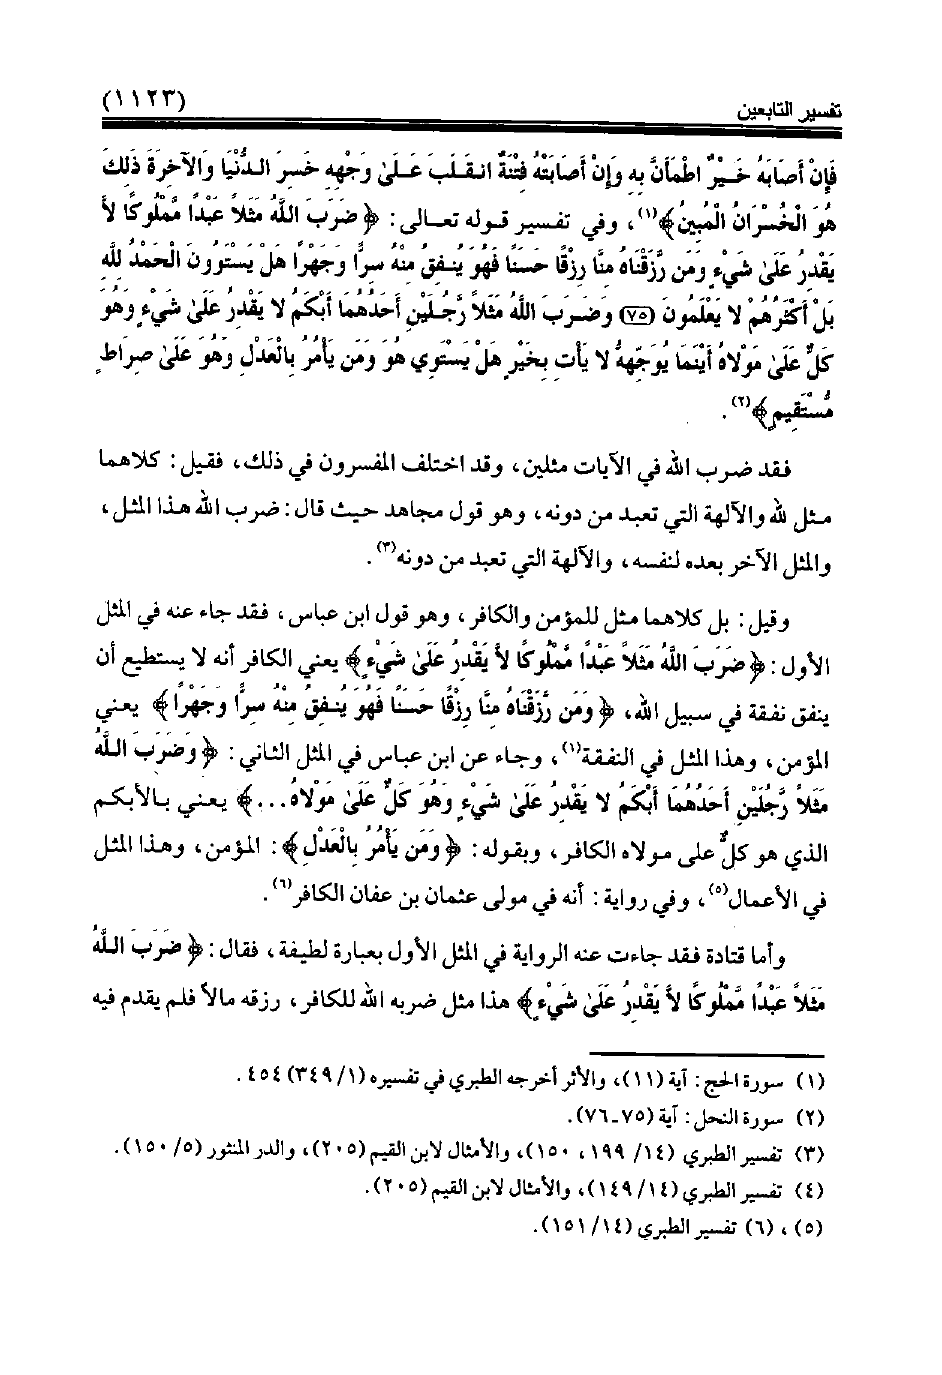 تفسير التابعين (١١٢٣)
فَإِنْ أَصَابَهُ خَيْرٌ اطْمَأَنَّ بِهِ وَإِنْ أَصَابَتْهُ فِتْنَةٌ انقَلَبَ عَلَىٰ وَجْهِهِ خَسِرَ الدُّنْيَا وَالآخِرَةَ ذَلِكَ
هُوَ الْخُسْرَانُ الْمُبِينُ﴾(١)، وفي تفسير قوله تعالى: ﴿ضَرَبَ اللَّهُ مَثَلاً عَبْدًا مَّمْلُوكًا لاَّ
يَقْدِرُ عَلَىٰ شَيْءٍ وَمَن رَّزَقْنَاهُ مِنَّا رِزْقًا حَسَنًا فَهُوَ يُنفِقُ مِنْهُ سِرًّا وَجَهْرًا هَلْ يَسْتَوُونَ الْحَمْدُ لِلَّهِ
بَلْ أَكْثَرُهُمْ لا يَعْلَمُونَ (٧٥) وَضَرَبَ اللَّهُ مَثَلاً رَّجُلَيْنِ أَحَدُهُمَا أَبْكَمُ لا يَقْدِرُ عَلَىٰ شَيْءٍ وَهُوَ
كَلٌّ عَلَىٰ مَوْلاهُ أَيْنَمَا يُوَجِّههُّ لا يَأْتِ بِخَيْرٍ هَلْ يَسْتَوِي هُوَ وَمَن يَأْمُرُ بِالْعَدْلِ وَهُوَ عَلَىٰ صِرَاطٍ
مُّسْتَقِيمٍ﴾(٢).
فقد ضرب الله في الآيات مثلين، وقد اختلف المفسرون في ذلك، فقيل: كلاهما
مثل لله والآلهة التي تعبد من دونه، وهو قول مجاهد حيث قال: ضرب الله هذا المثل،
والمثل الآخر بعده لنفسه، والآلهة التي تعبد من دونه(٣).
وقيل: بل كلاهما مثل للمؤمن والكافر، وهو قول ابن عباس، فقد جاء عنه في المثل
الأول: ﴿ضَرَبَ اللَّهُ مَثَلاً عَبْدًا مَّمْلُوكًا لاَّ يَقْدِرُ عَلَىٰ شَيْءٍ﴾ يعني الكافر أنه لا يستطيع أن
ينفق نفقة في سبيل الله، ﴿وَمَن رَّزَقْنَاهُ مِنَّا رِزْقًا حَسَنًا فَهُوَ يُنفِقُ مِنْهُ سِرًّا وَجَهْرًا﴾ يعني
المؤمن، وهذا المثل في النفقة(١)، وجاء عن ابن عباس في المثل الثاني: ﴿وَضَرَبَ اللَّهُ
مَثَلاً رَّجُلَيْنِ أَحَدُهُمَا أَبْكَمُ لا يَقْدِرُ عَلَىٰ شَيْءٍ وَهُوَ كَلٌّ عَلَىٰ مَوْلاهُ...﴾ يعني بالأبكم
الذي هو كلٌّ على مولاه الكافر، وبقوله: ﴿وَمَن يَأْمُرُ بِالْعَدْلِ﴾: المؤمن، وهذا المثل
في الأعمال(٥)، وفي رواية: أنه في مولى عثمان بن عفان الكافر(٦).
وأما قتادة فقد جاءت عنه الرواية في المثل الأول بعبارة لطيفة، فقال: ﴿ضَرَبَ اللَّهُ
مَثَلاً عَبْدًا مَّمْلُوكًا لاَّ يَقْدِرُ عَلَىٰ شَيْءٍ﴾ هذا مثل ضربه الله للكافر، رزقه مالاً فلم يقدم فيه
(١) سورة الحج: آية (١١)، والأثر أخرجه الطبري في تفسيره (١/ ٣٤٩) ٤٥٤.
(٢) سورة النحل: آية (٧٥-٧٦).
(٣) تفسير الطبري (١٤/ ١٩٩، ١٥٠)، والأمثال لابن القيم (٢٠٥)، والدر المنثور (٥/ ١٥٠).
(٤) تفسير الطبري (١٤/ ١٤٩)، والأمثال لابن القيم (٢٠٥).
(٥)، (٦) تفسير الطبري (١٤/ ١٥١).